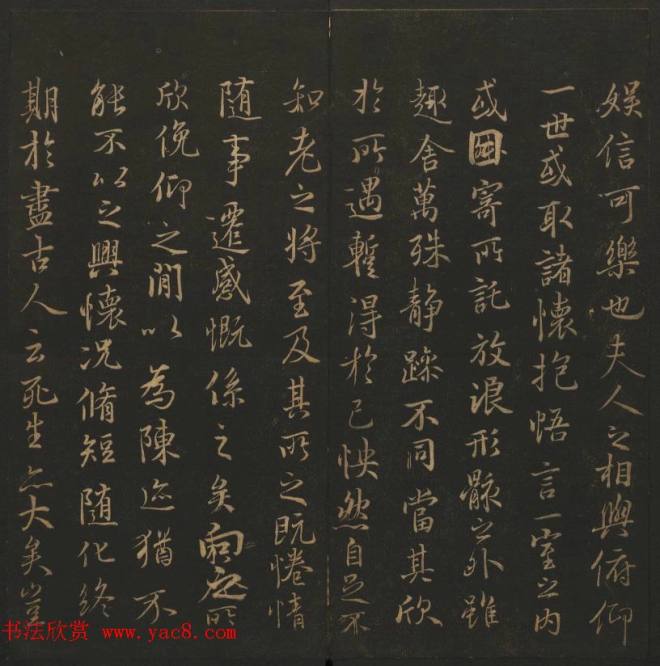 娱信可樂也夫人之相與俯仰
一世或取諸懷抱悟言一室之内
或因寄所託放浪形骸之外雖
趣舍萬殊静躁不同當其欣
於所遇蹔得於己怏然自足不
知老之将至及其所之既惓情
随事遷感慨係之矣向之所
欣俛仰之閒以為陳迹猶不
能不以之興懷况脩短随化終
期於盡古人云死生亦大矣豈
书法欣赏 www.yac8.com